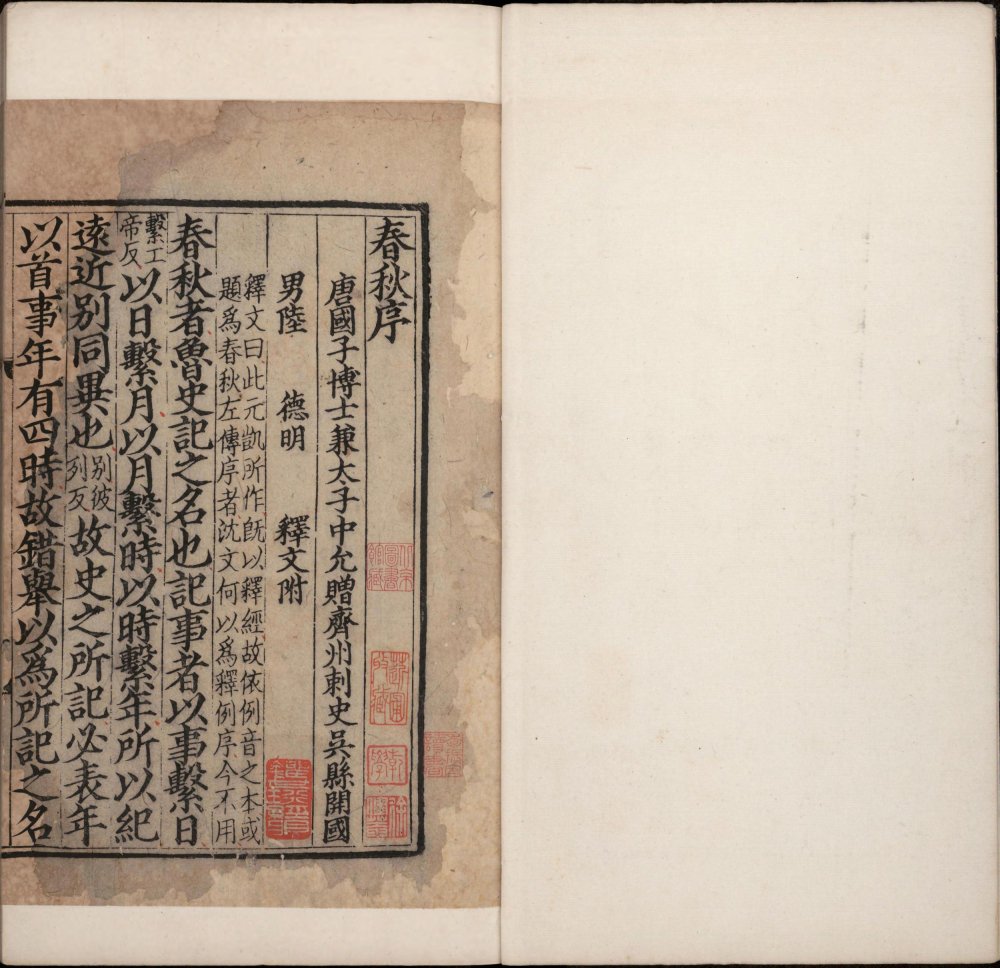 春秋序
北京
圖書
館藏
乾學
唐國子博士兼太子中允贈齊州刺史吳縣開國
男陸　德明　釋文附
釋文曰此元凱所作旣以釋經故依例音之本或
題爲春秋左傳序者沈文何以爲釋例序今不用
春秋者魯史記之名也記事者以事繫日
繫工帝反以日繫月以月繫時以時繫年所以紀
逺近别同異也别彼列反故史之所記必表年
以首事年有四時故錯舉以爲所記之名